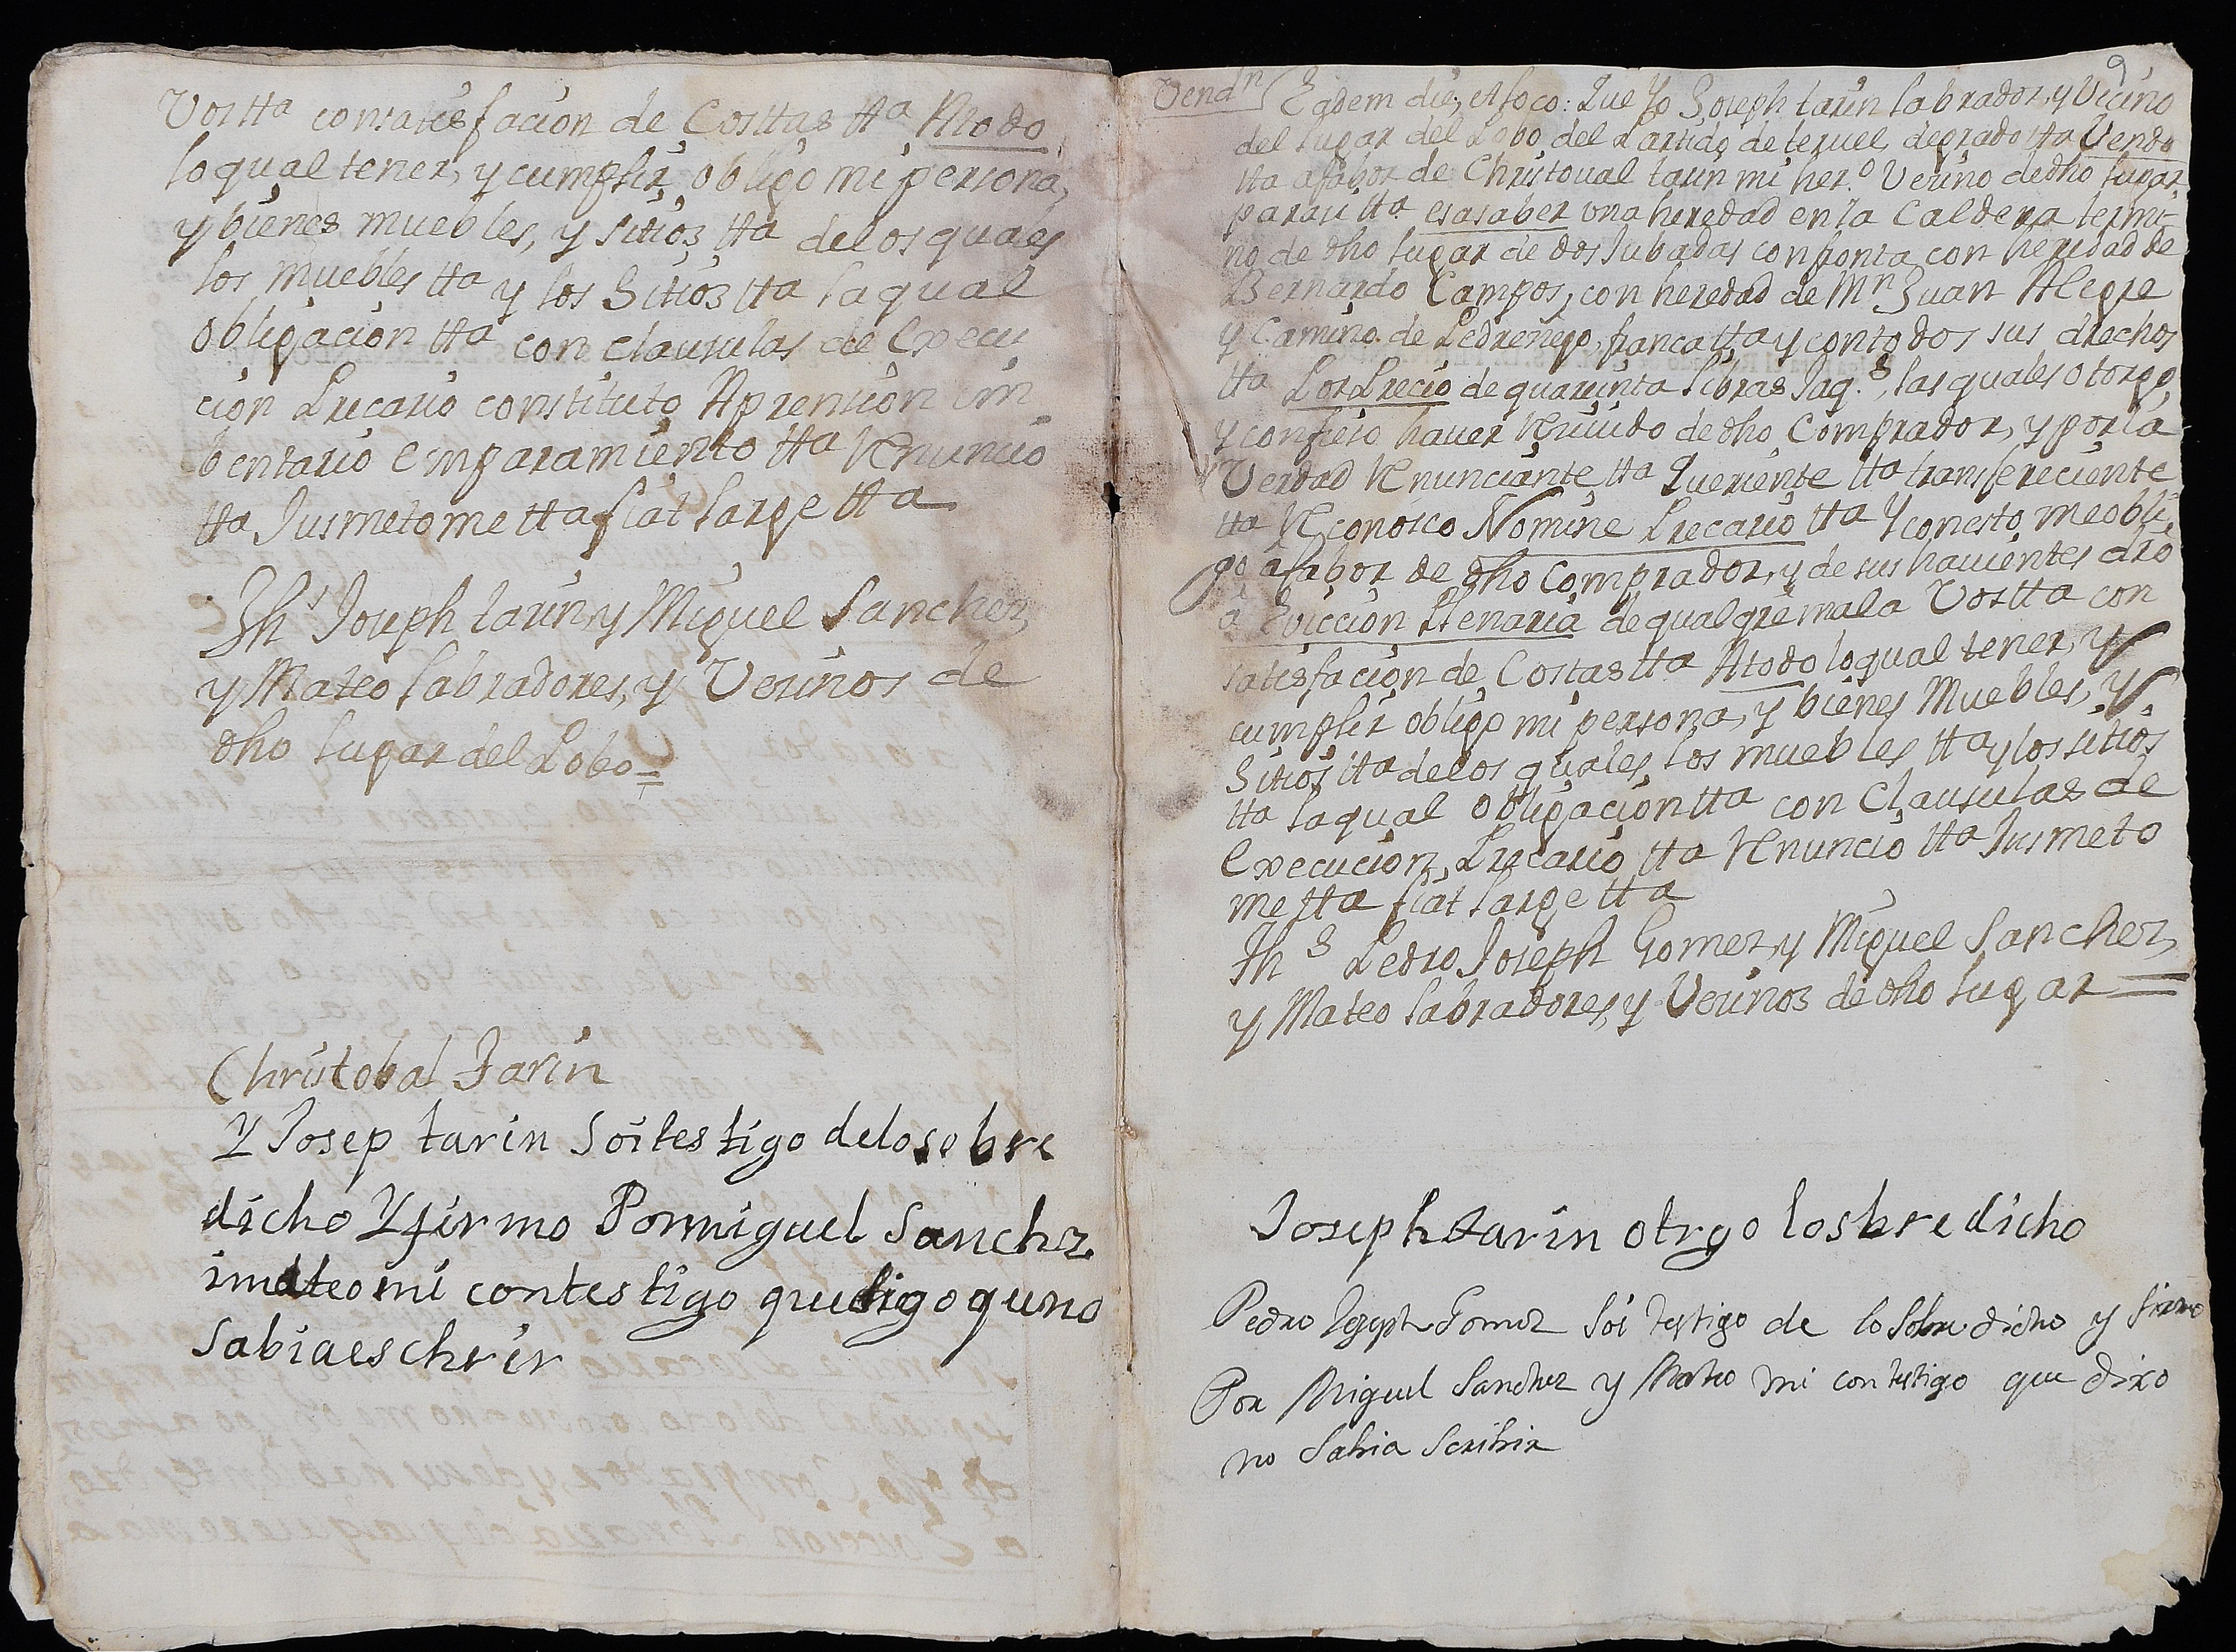 Voz tta con satisfacion de Costtas tta A todo
lo qual tener, y cumplir obligo mi persona,
y bienes muebles, y sitios tta de los quales
los muebles tta y los Sitios tta la qual
obligacion tta con clausulas de Execu
cion Precario constituto Aprension im
bentario emparamiento tta Renuncio
tta Jusmetome tta fiat large tta
Ths Joseph tarin, y Miguel Sanchez,
y Mateo labradores, y Vecinos de
dho lugar del Pobo =
Christobal Tarin
Y Josep tarin soi testigo de lo sobre
dicho Y firmo Por miguel Sanchz
i mateo mi contestigo que digo quno
sabia eschrir
9
Vendn Eadem die, et loco: Que Yo Joseph tarin labrador, y Vecino
del lugar del Pobo del Partido de teruel de grado tta Vendo
tta a fabor de Christoual tarin mi her.o Vecino de dho lugar
para si tta es a saber una heredad en la Caldera termi-
no de dho lugar de dos Jubadas confronta con heredad de
Bernardo Campos, con heredad de Mn Juan Alegre
y Camino de Pedrenego, franca tta y con todos sus drechos
tta Por Precio de quarenta libras Jaq.s, las quales otorgo,
y confieso haver Reciuido de dho Comprador, y por la
Verdad Renunciante tta Queriente tta transfereciente
tta Reconosco Nomine Precario tta Y con esto me obli-
go a fabor de dho Comprador, y de sus hauientes dro
a Eviccion Plenaria de qualqre mala Voz tta con
satisfacion de Costas tta A todo lo qual tener, y
cumplir obligo mi persona, y bienes Muebles, y
Sitios tta de los quales los muebles tta y los sitios
tta la qual obligacion tta con Clausulas de
Execucion, Precario tta Renuncio tta Jusmeto
me tta fiat large tta
Ths Pedro Joseph Gomez, y Miguel Sanchez,
y Mateo labradores, y Vecinos de dho lugar =
Joseph tarin otrgo lo sbre dicho
Pedro Joseph Gomez soi testigo de lo sobre dicho y firmo
Por Miguel Sanchez y Mateo mi contestigo que dixo
no sabia scribir